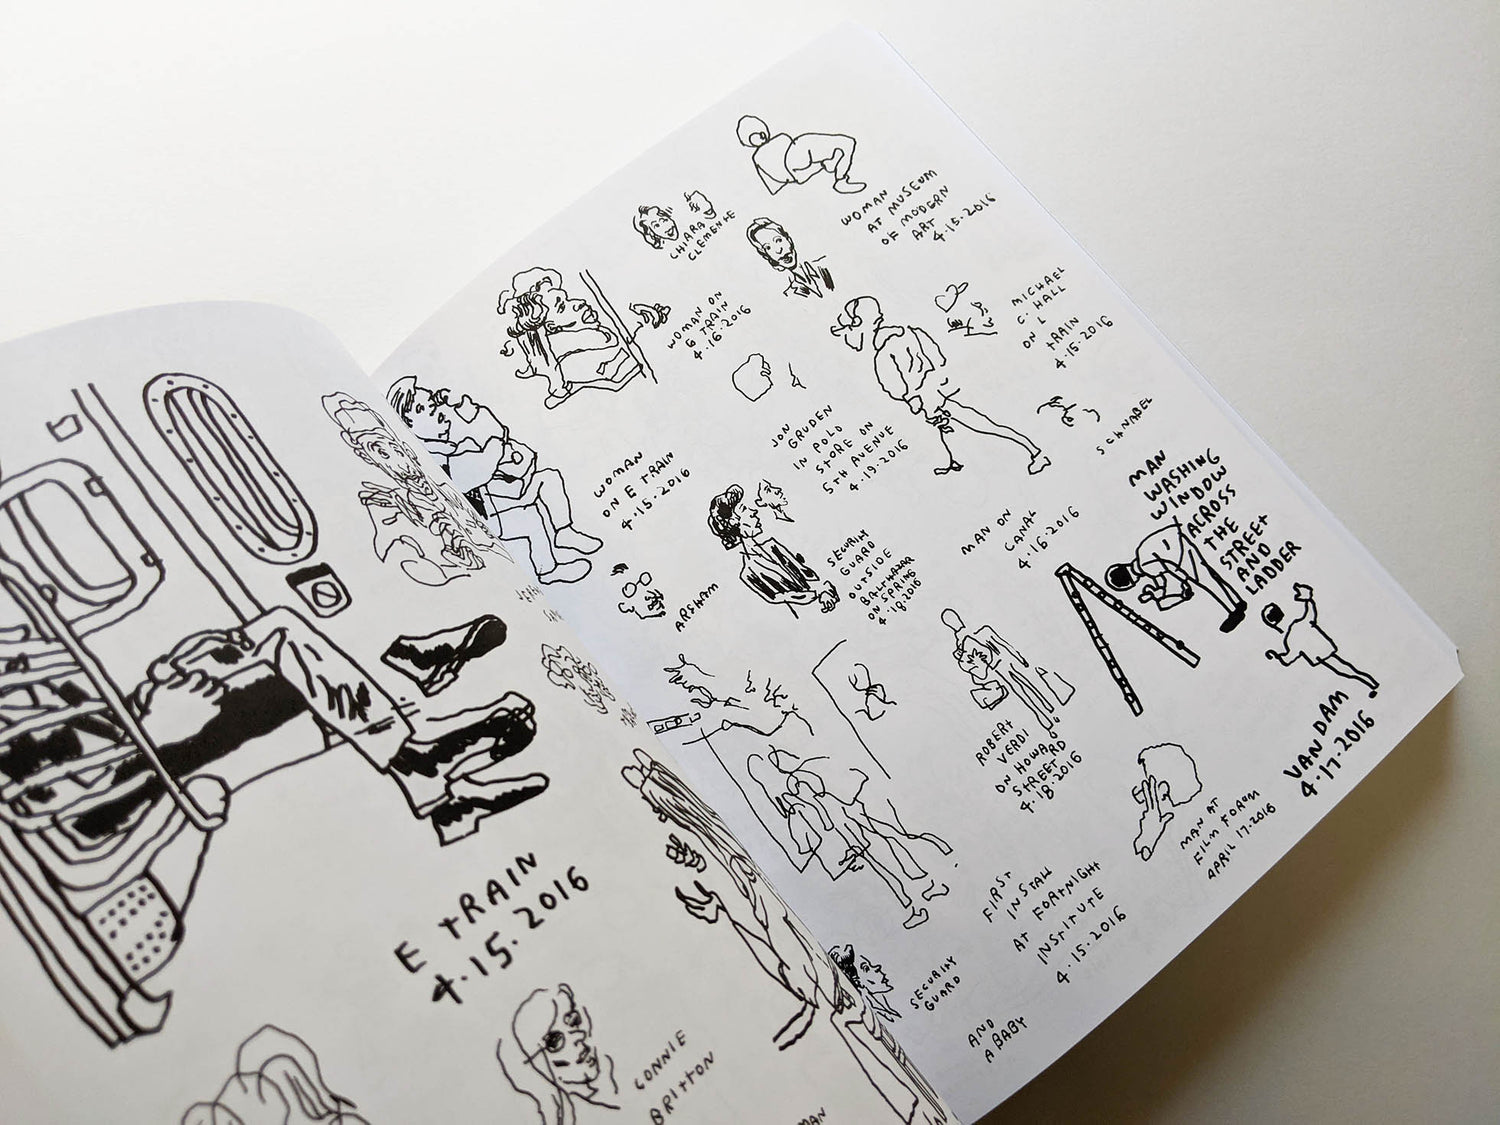 E tRAIN
4.15.2016
CONNIE
BRITTON
WOMAN
AT MUSEUM
OF MODERN
ART
4.15.2016
CHIARA
CLEMENTE
WOMAN ON
G TRAIN
4.16.2016
MICHAEL
C. HALL
ON L
tRAIN
4.15.2016
JON
GRUDEN
IN POLO
STORE ON
5TH AVENUE
4.19.2016
SCHNABEL
WOMAN
ON E TRAIN
4.15.2016
MAN
WASHING
WINDOW
ACROSS
THE
STREEt
AND
LADDER
VAN DAM
4.17.2016
ARSHAM
SECURITY
GUARD
OUTSIDE
BALTHAZAR
ON SPRING
4.18.2016
MAN ON
CANAL
4.16.2016
ROBERt
VERDI
ON HOWARD
STREET
4.18.2016
MAN AT
FILM FORUM
APRIL 17.2016
FIRST
INSTALL
AT FORtNIGHt
INSTITUTE
4.15.2016
SECURITY
GUARD
AND
A BABY